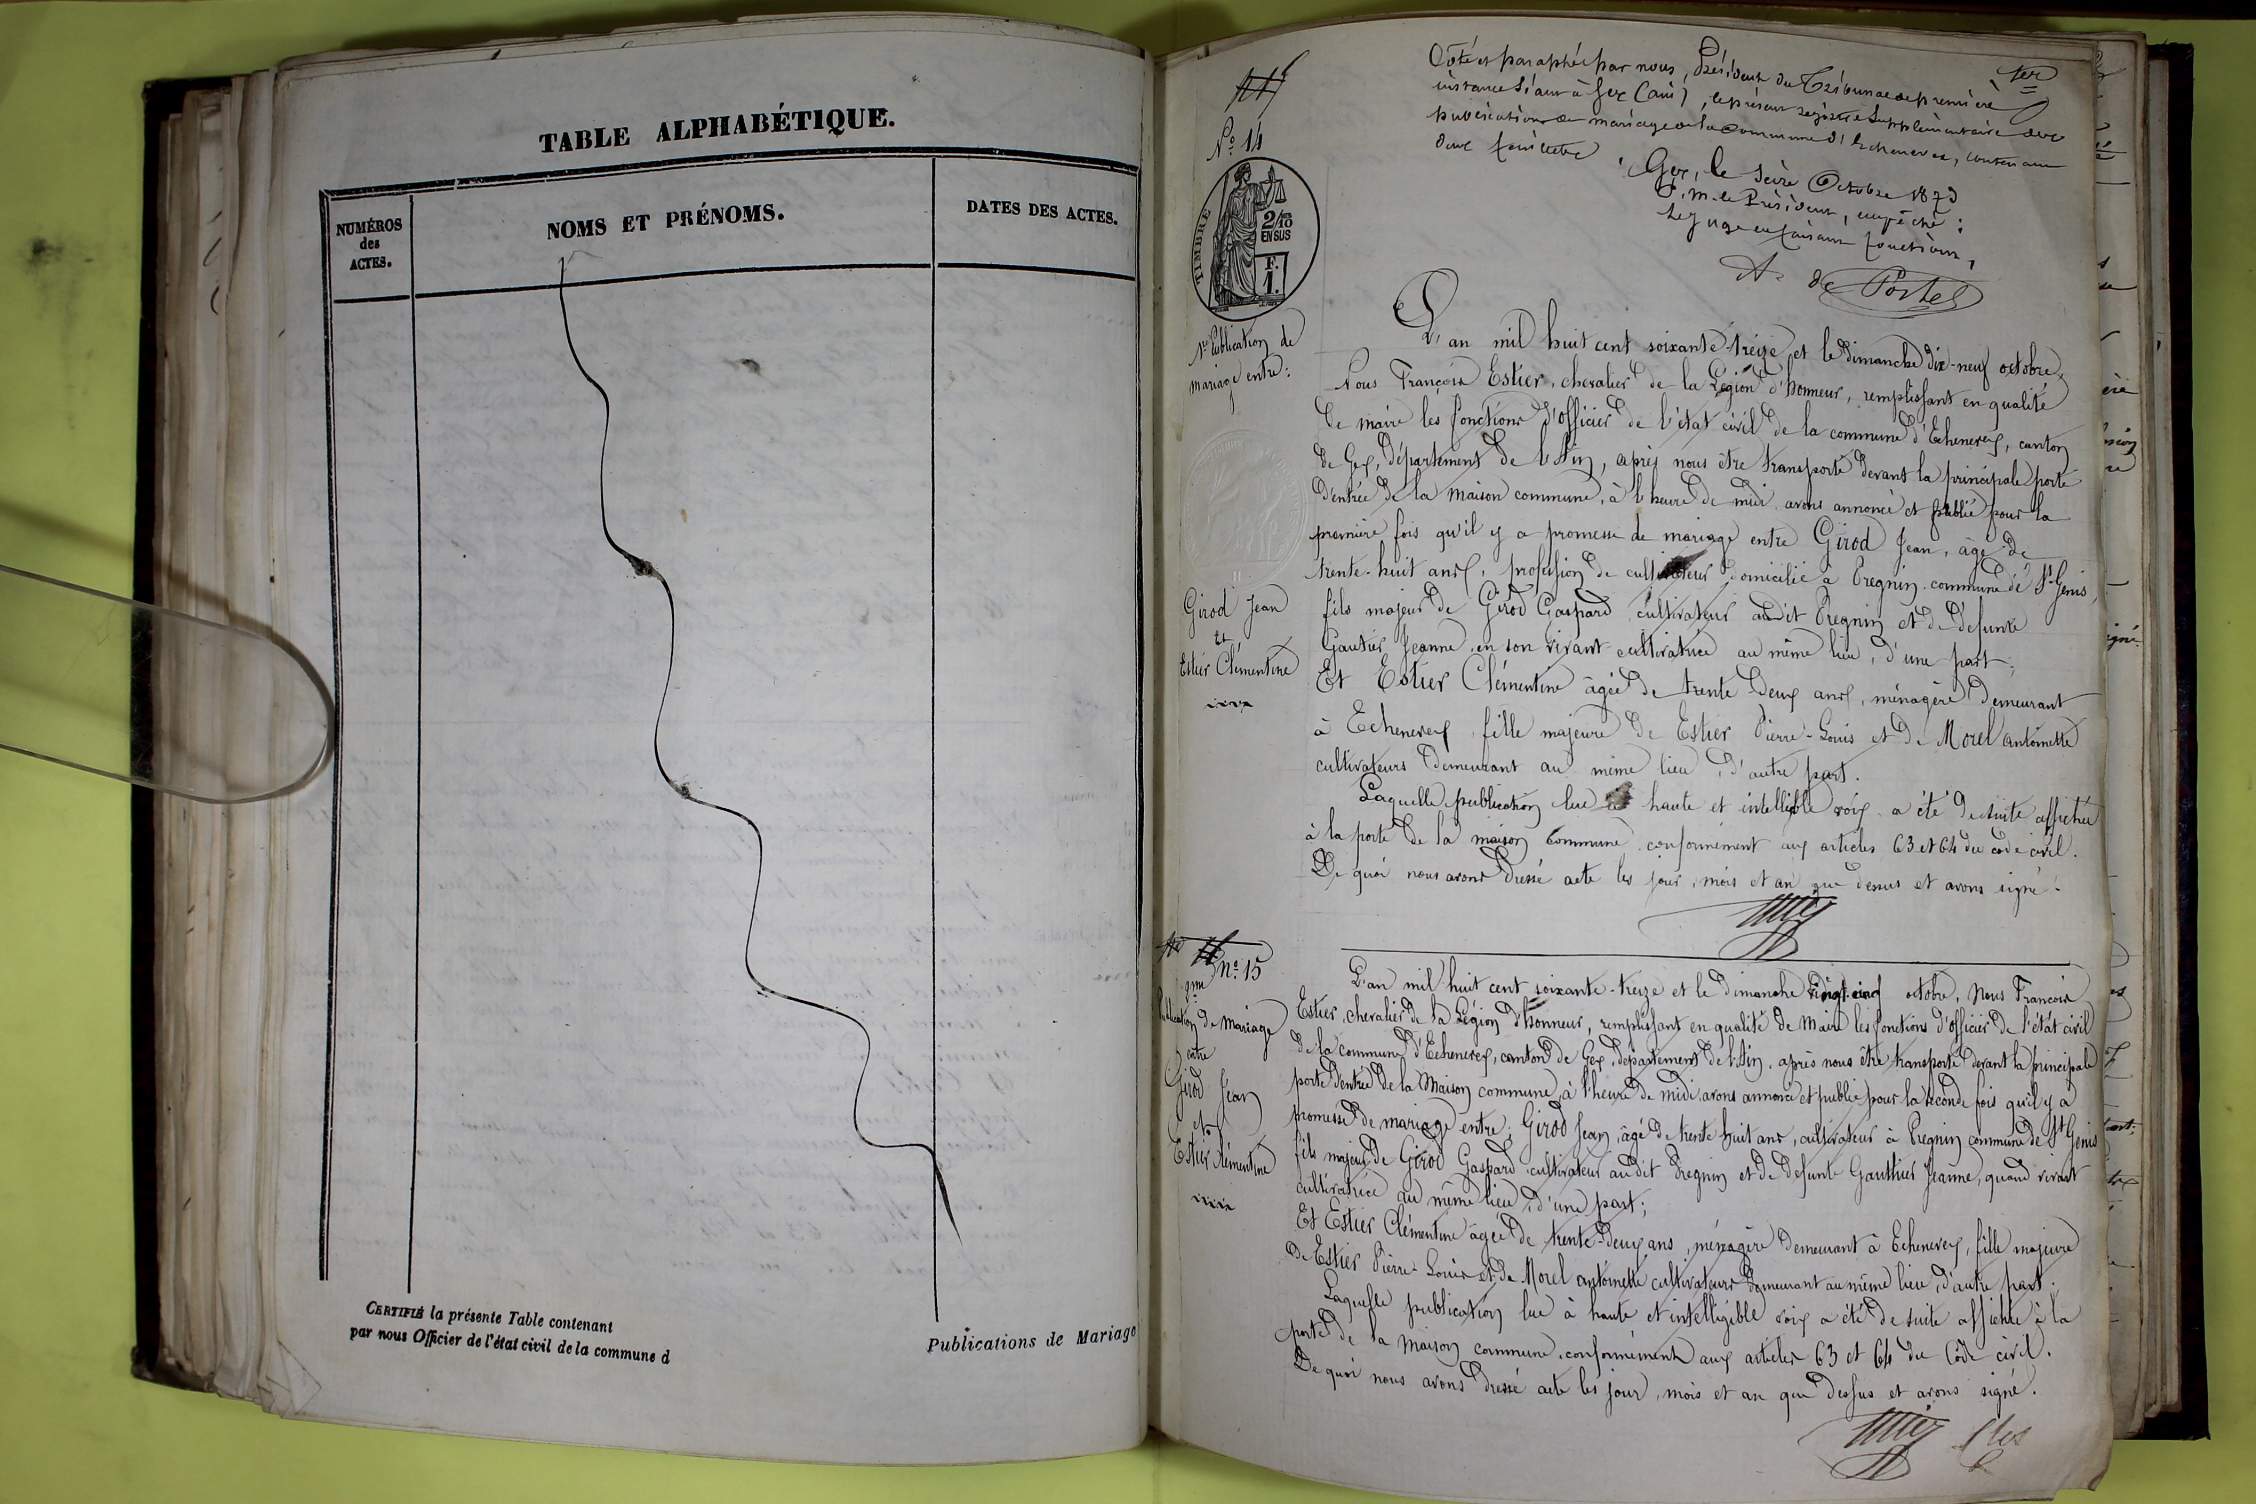 TABLE ALPHABÉTIQUE.
NUMÉROS
des
ACTES.
NOMS ET PRÉNOMS.
DATES DES ACTES.
CERTIFIÉ la présente Table contenant
par nous Officier de l'état civil de la commune d
Publications de Mariage
1er
Coté et paraphé par nous, Président du Tribunal de première
instance séant à Gex (Ain), le présent registre supplémentaire des
publications de mariage de la commune d'Echenevex, contenant
deux feuillets
Gex, le seize Octobre 1873
P. M. le Président, empêché :
Le Juge en faisant fonctions,
A. de Portes
No. 14
TIMBRE
2/10
EN SUS
F.
1.
1re Publication de
mariage entre :
Girod Jean
et
Estier Clémentine
L'an mil huit cent soixante-treize et le dimanche dix-neuf octobre,
Nous François Estier, chevalier de la Légion d'honneur, remplissant en qualité
de maire les fonctions d'officier de l'état civil de la commune d'Echenevex, canton
de Gex, département de l'Ain, après nous être transporté devant la principale porte
d'entrée de la maison commune, à l'heure de midi avons annoncé et publié pour la
première fois qu'il y a promesse de mariage entre Girod Jean, âgé de
trente-huit ans, profession de cultivateur domicilié à Pregnin commune de St-Genis,
fils majeur de Girod Gaspard cultivateur audit Pregnin et de défunte
Gautier Jeanne, en son vivant cultivatrice au même lieu, d'une part ;
Et Estier Clémentine âgée de trente-deux ans, ménagère demeurant
à Echenevex, fille majeure de Estier Pierre-Louis et de Morel Antoinette
cultivateurs demeurant au même lieu, d'autre part.
Laquelle publication lue à haute et intelligible voix a été de suite affichée
à la porte de la maison commune conformément aux articles 63 et 64 du code civil.
De quoi nous avons dressé acte les jour, mois et an que dessus et avons signé.
No. 15
2me
Publication de mariage
entre
Girod Jean
et
Estier Clémentine
L'an mil huit cent soixante-treize et le dimanche vingt-cinq octobre, Nous François
Estier, chevalier de la Légion d'honneur, remplissant en qualité de Maire les fonctions d'officier de l'état civil
de la commune d'Echenevex, canton de Gex, département de l'Ain, après nous être transporté devant la principale
porte d'entrée de la Maison commune, à l'heure de midi, avons annoncé et publié pour la seconde fois qu'il y a
promesse de mariage entre, Girod Jean, âgé de trente huit ans, cultivateur à Pregnin commune de St Genis
fils majeur de Girod Gaspard cultivateur audit Pregnin et de défunte Gauthier Jeanne, quand vivait
cultivatrice au même lieu, d'une part ;
Et Estier Clémentine âgée de trente-deux ans, ménagère demeurant à Echenevex, fille majeure
de Estier Pierre-Louis et de Morel antoinette cultivateurs demeurant au même lieu, d'autre part.
Laquelle publication lue à haute et intelligible voix a été de suite affichée à la
porte de la Maison commune, conformément aux articles 63 et 64 du Code civil.
De quoi nous avons dressé acte les jour, mois et an que dessus et avons signé.